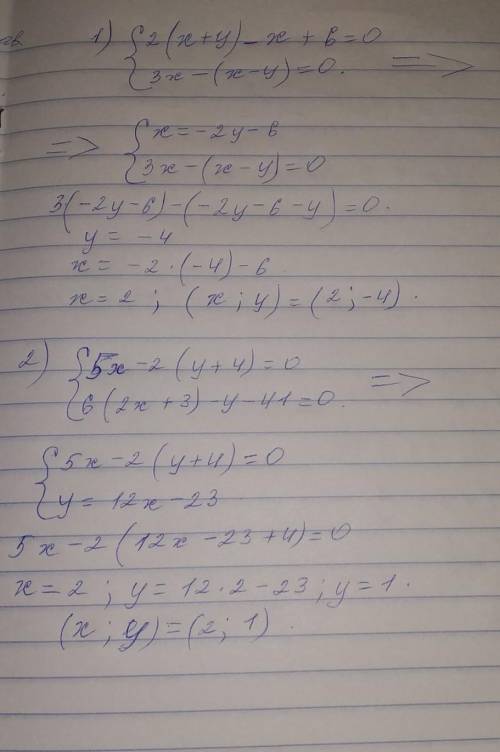 1) { 2(x+y) - x + 6 = 0
3x - (x - y) = 0. =>
=> { x = -2y - 6
3x - (x - y) = 0
3(-2y - 6) - (-2y - 6 - y) = 0.
y = -4
x = -2 · (-4) - 6
x = 2 ; (x ; y) = (2 ; -4).
2) { 5x - 2(y + 4) = 0
6(2x + 3) - y - 41 = 0. =>
{ 5x - 2(y + 4) = 0
y = 12x - 23
5x - 2(12x - 23 + 4) = 0
x = 2 ; y = 12 · 2 - 23 ; y = 1.
(x ; y) = (2 ; 1).